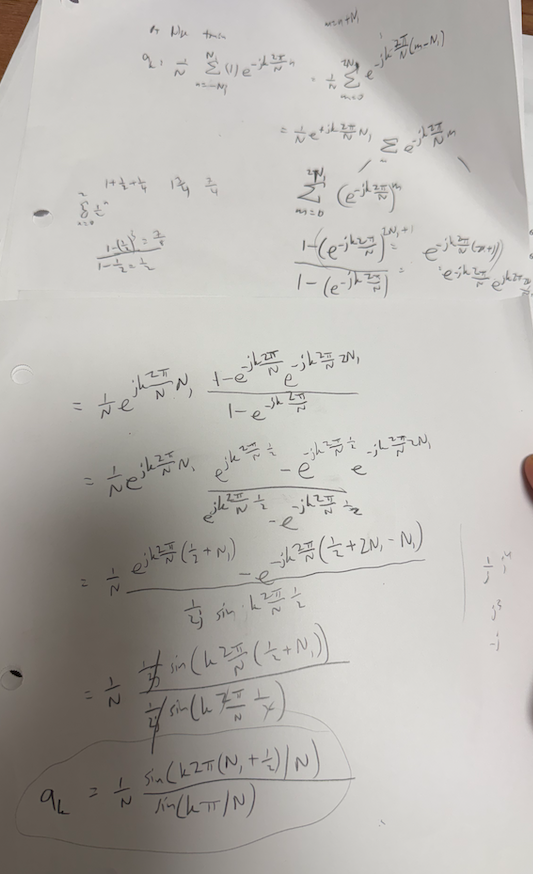 m=n+N₁
a_k = 1/N Σ_{n=-N₁}^{N₁} (1) e^{-jk 2π/N n} = 1/N Σ_{m=0}^{2N₁} e^{-jk 2π/N (m-N₁)}
= 1/N e^{+jk 2π/N N₁} Σ e^{-jk 2π/N m}
1+1/2+1/4
Σ_{m=0}^{2N₁} (e^{-jk 2π/N})^m
1-(e^{-jk 2π/N})^{2N₁+1} / 1-(e^{-jk 2π/N})
= 1/N e^{jk 2π/N N₁} (1-e^{-jk 2π/N} e^{-jk 2π/N 2N₁}) / (1-e^{-jk 2π/N})
= 1/N e^{jk 2π/N N₁} (e^{jk 2π/N 1/2} - e^{-jk 2π/N 1/2} e^{-jk 2π/N 2N₁}) / (e^{jk 2π/N 1/2} - e^{-jk 2π/N 1/2})
= 1/N (e^{jk 2π/N (1/2+N₁)} - e^{-jk 2π/N (1/2+2N₁-N₁)}) / (1/2j sin k 2π/N 1/2)
= 1/N (1/2j sin(k 2π/N (1/2+N₁))) / (1/2j sin(k 2π/N 1/2))
a_k = 1/N sin(k2π(N₁+1/2)/N) / sin(kπ/N)